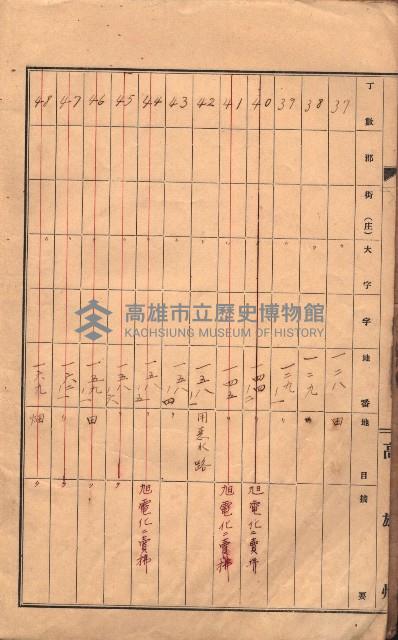 丁數 郡 街(庄) 大字 字 地番 地目 摘要
高雄州
37 一二八 田
38 〃 一二九 〃
39 一二九ノ一 〃
40 一四四 旭電化ニ賣拂
41 〃 一四五 〃 旭電化ニ賣拂
42 一五八ノ一 用悪水路
43 一五八ノ四
44 一五八ノ五 旭電化ニ賣拂
45 〃 一五八ノ六 〃
46 一五九ノ一 田 〃
47 〃 一六二ノ一 〃 〃
48 一六九 畑 〃
高雄市立歷史博物館
KAOHSIUNG MUSEUM OF HISTORY